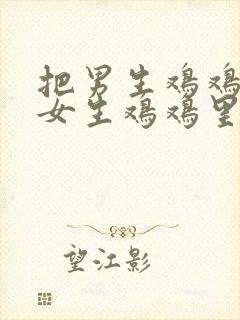 把男生鸡鸡
女生鸡鸡里
望江影